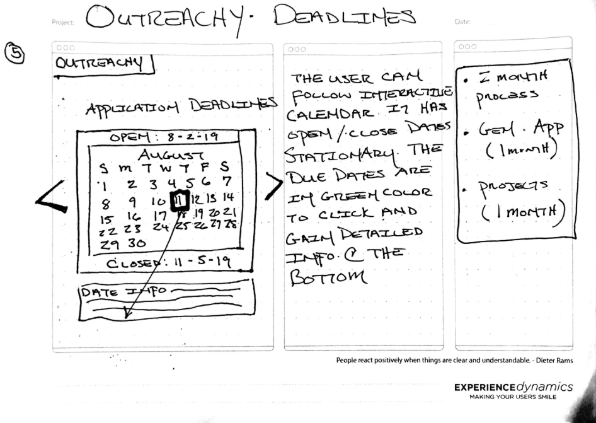 Project:
OUTREACHY. DEADLINES
Date:
5
OUTREACHY
APPLICATION DEADLINES
OPEN: 8-2-19
AUGUST
S M T W T F S
1 2 3 4 5 6 7
8 9 10 11 12 13 14
15 16 17 18 19 20 21
22 23 24 25 26 27 28
29 30
CLOSED: 11-5-19
DATE INFO
<
>
THE USER CAN
FOLLOW INTERACTIVE
CALENDAR. IT HAS
OPEN/CLOSE DATES
STATIONARY. THE
DUE DATES ARE
IN GREEN COLOR
TO CLICK AND
GAIN DETAILED
INFO. @ THE
BOTTOM
• 2 MONTH
PROCESS
• GEN. APP
(1 MONTH)
• PROJECTS
(1 MONTH)
People react positively when things are clear and understandable. - Dieter Rams
EXPERIENCEdynamics
MAKING YOUR USERS SMILE